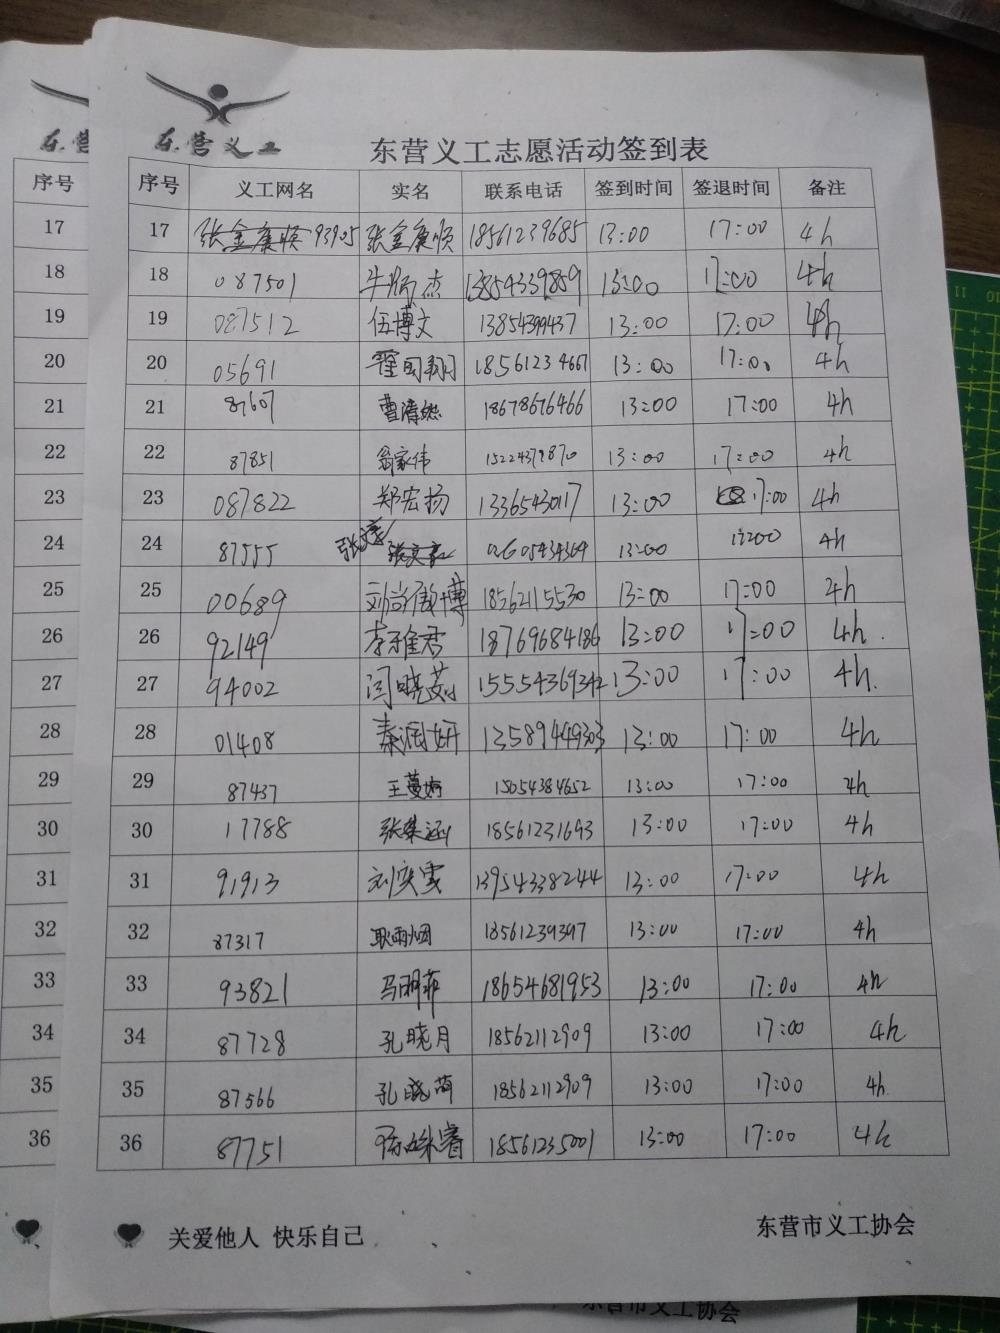 东营义工
东营义工志愿活动签到表
序号 义工网名 实名 联系电话 签到时间 签退时间 备注
17 张金康顺93905 张金康顺 18561239685 13:00 17:00 4h
18 087501 牛炳杰 13854339859 13:00 17:00 4h
19 087512 伍博文 13854399437 13:00 17:00 4h
20 05691 翟国翔 18561234667 13:00 17:00 4h
21 87607 曹清然 18678676466 13:00 17:00 4h
22 87851 翁家伟 15224379870 13:00 17:00 4h
23 087822 郑宏扬 13365430117 13:00 17:00 4h
24 87555 13:00 17:00 4h
25 00689 刘尚傲博 18562115530 13:00 17:00 4h
26 92149 李雅君 18769684186 13:00 17:00 4h.
27 94002 闫晓 15554369342 13:00 17:00 4h.
28 01408 秦润妍 13589449303 13:00 17:00 4h
29 87437 王蔓婷 15054384652 13:00 17:00 4h
30 17788 张荣涵 18561231693 13:00 17:00 4h
31 91913 刘奕雯 13954338244 13:00 17:00 4h
32 87317 耿雨烟 18561239397 13:00 17:00 4h
33 93821 马明菲 18654681953 13:00 17:00 4h
34 87728 孔晓月 18562112909 13:00 17:00 4h
35 87566 孔晓荷 18562112909 13:00 17:00 4h
36 87751 18561235001 13:00 17:00 4h
关爱他人 快乐自己
东营市义工协会
序号
17
18
19
20
21
22
23
24
25
26
27
28
29
30
31
32
33
34
35
36
东营市义工协会